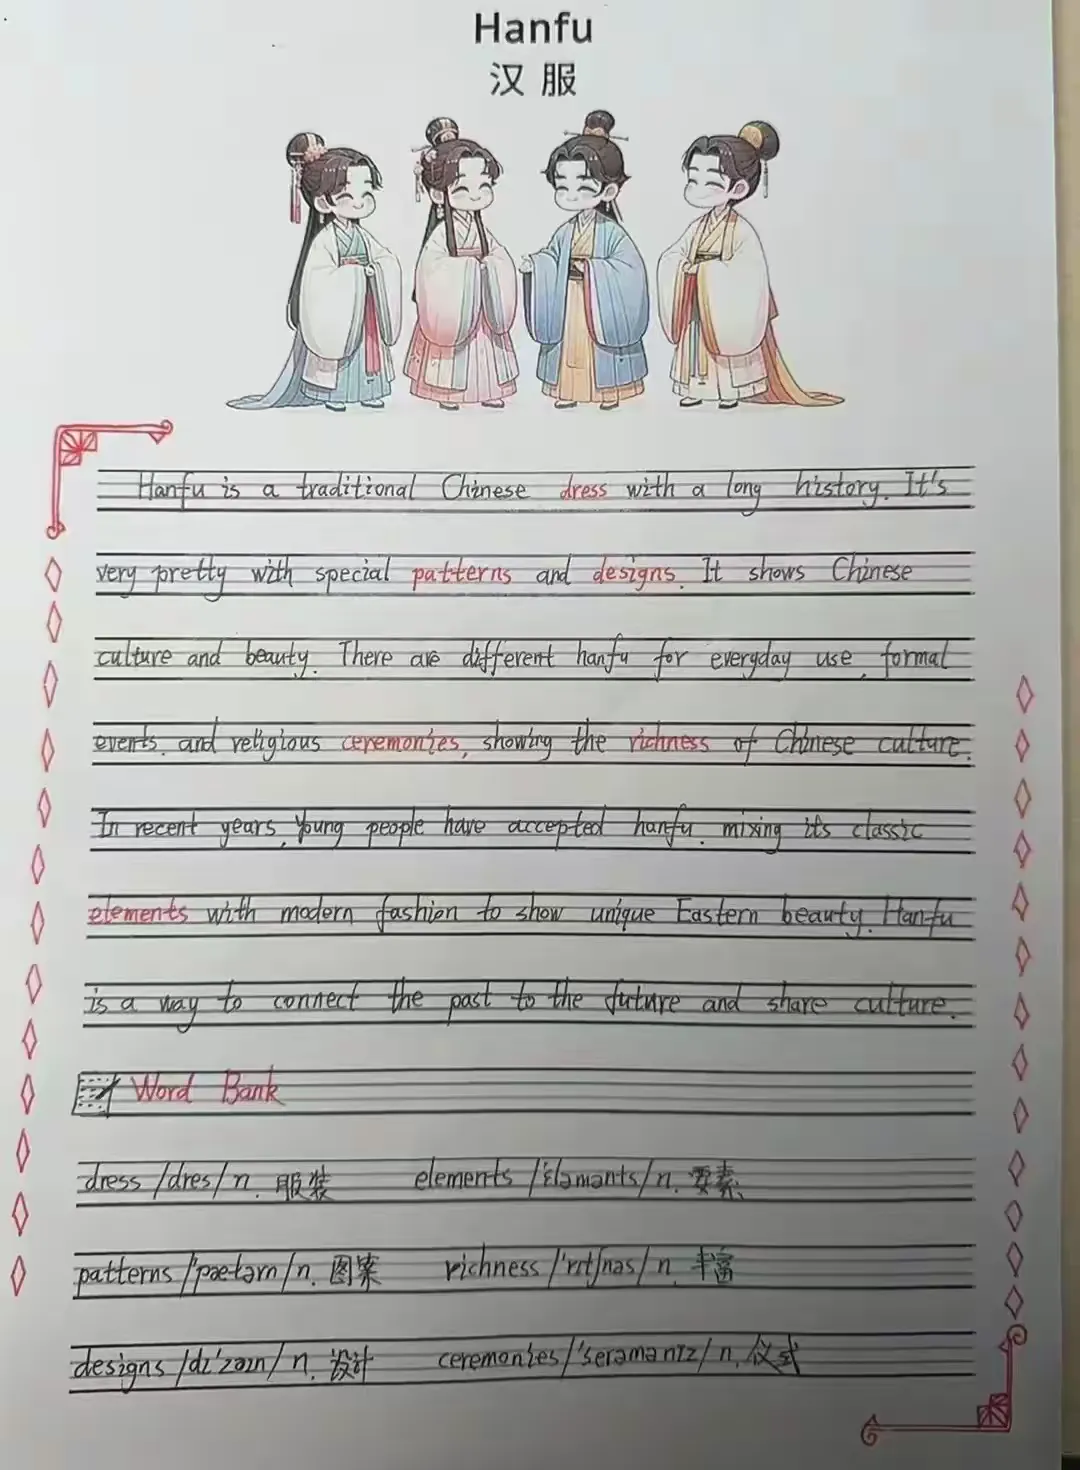 Hanfu
汉服
Hanfu is a traditional Chinese dress with a long history. It's
very pretty with special patterns and designs. It shows Chinese
culture and beauty. There are different hanfu for everyday use, formal
events, and religious ceremonies, showing the richness of Chinese culture.
In recent years, young people have accepted hanfu, mixing its classic
elements with modern fashion to show unique Eastern beauty. Hanfu
is a way to connect the past to the future and share culture.
Word Bank
dress /dres/ n. 服装 elements /'eləmənts/ n. 要素
patterns /'pætərn/ n. 图案 richness /'rɪtʃnəs/ n. 丰富
designs /dɪ'zaɪn/ n. 设计 ceremonies /'serəmənɪz/ n. 仪式